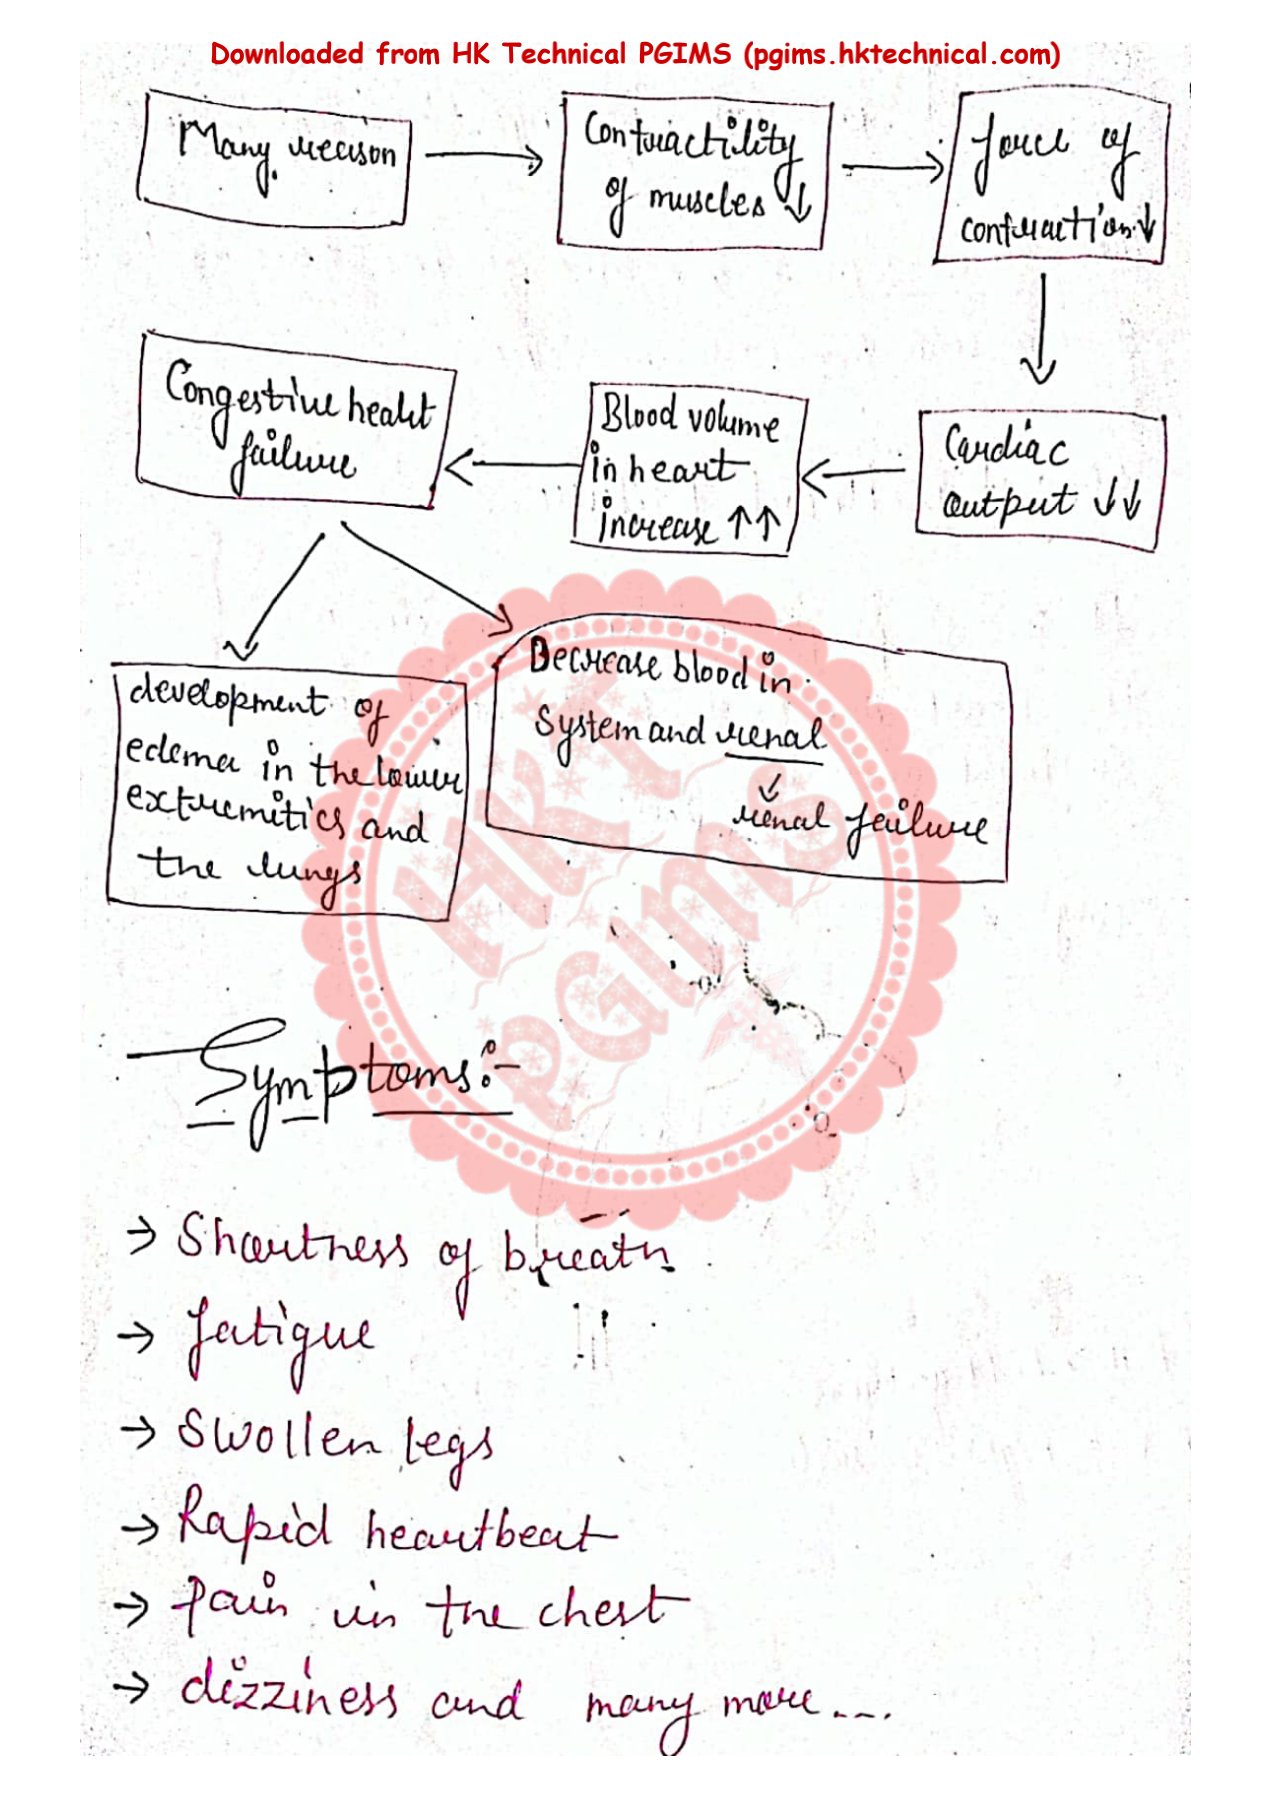 Downloaded from HK Technical PGIMS (pgims.hktechnical.com)
Many reason
Contractility
of muscles ↓
force of
contraction ↓
Cardiac
output ↓↓
Blood volume
in heart
increase ↑↑
Congestive heart
failure
development of
edema in the lower
extremities and
the lungs
Decrease blood in
System and renal
renal failure
HKT
PGIMS
Symptoms:-
→ Shortness of breath
→ fatigue
→ Swollen legs
→ Rapid heartbeat
→ Pain in the chest
→ dizziness and many more ...